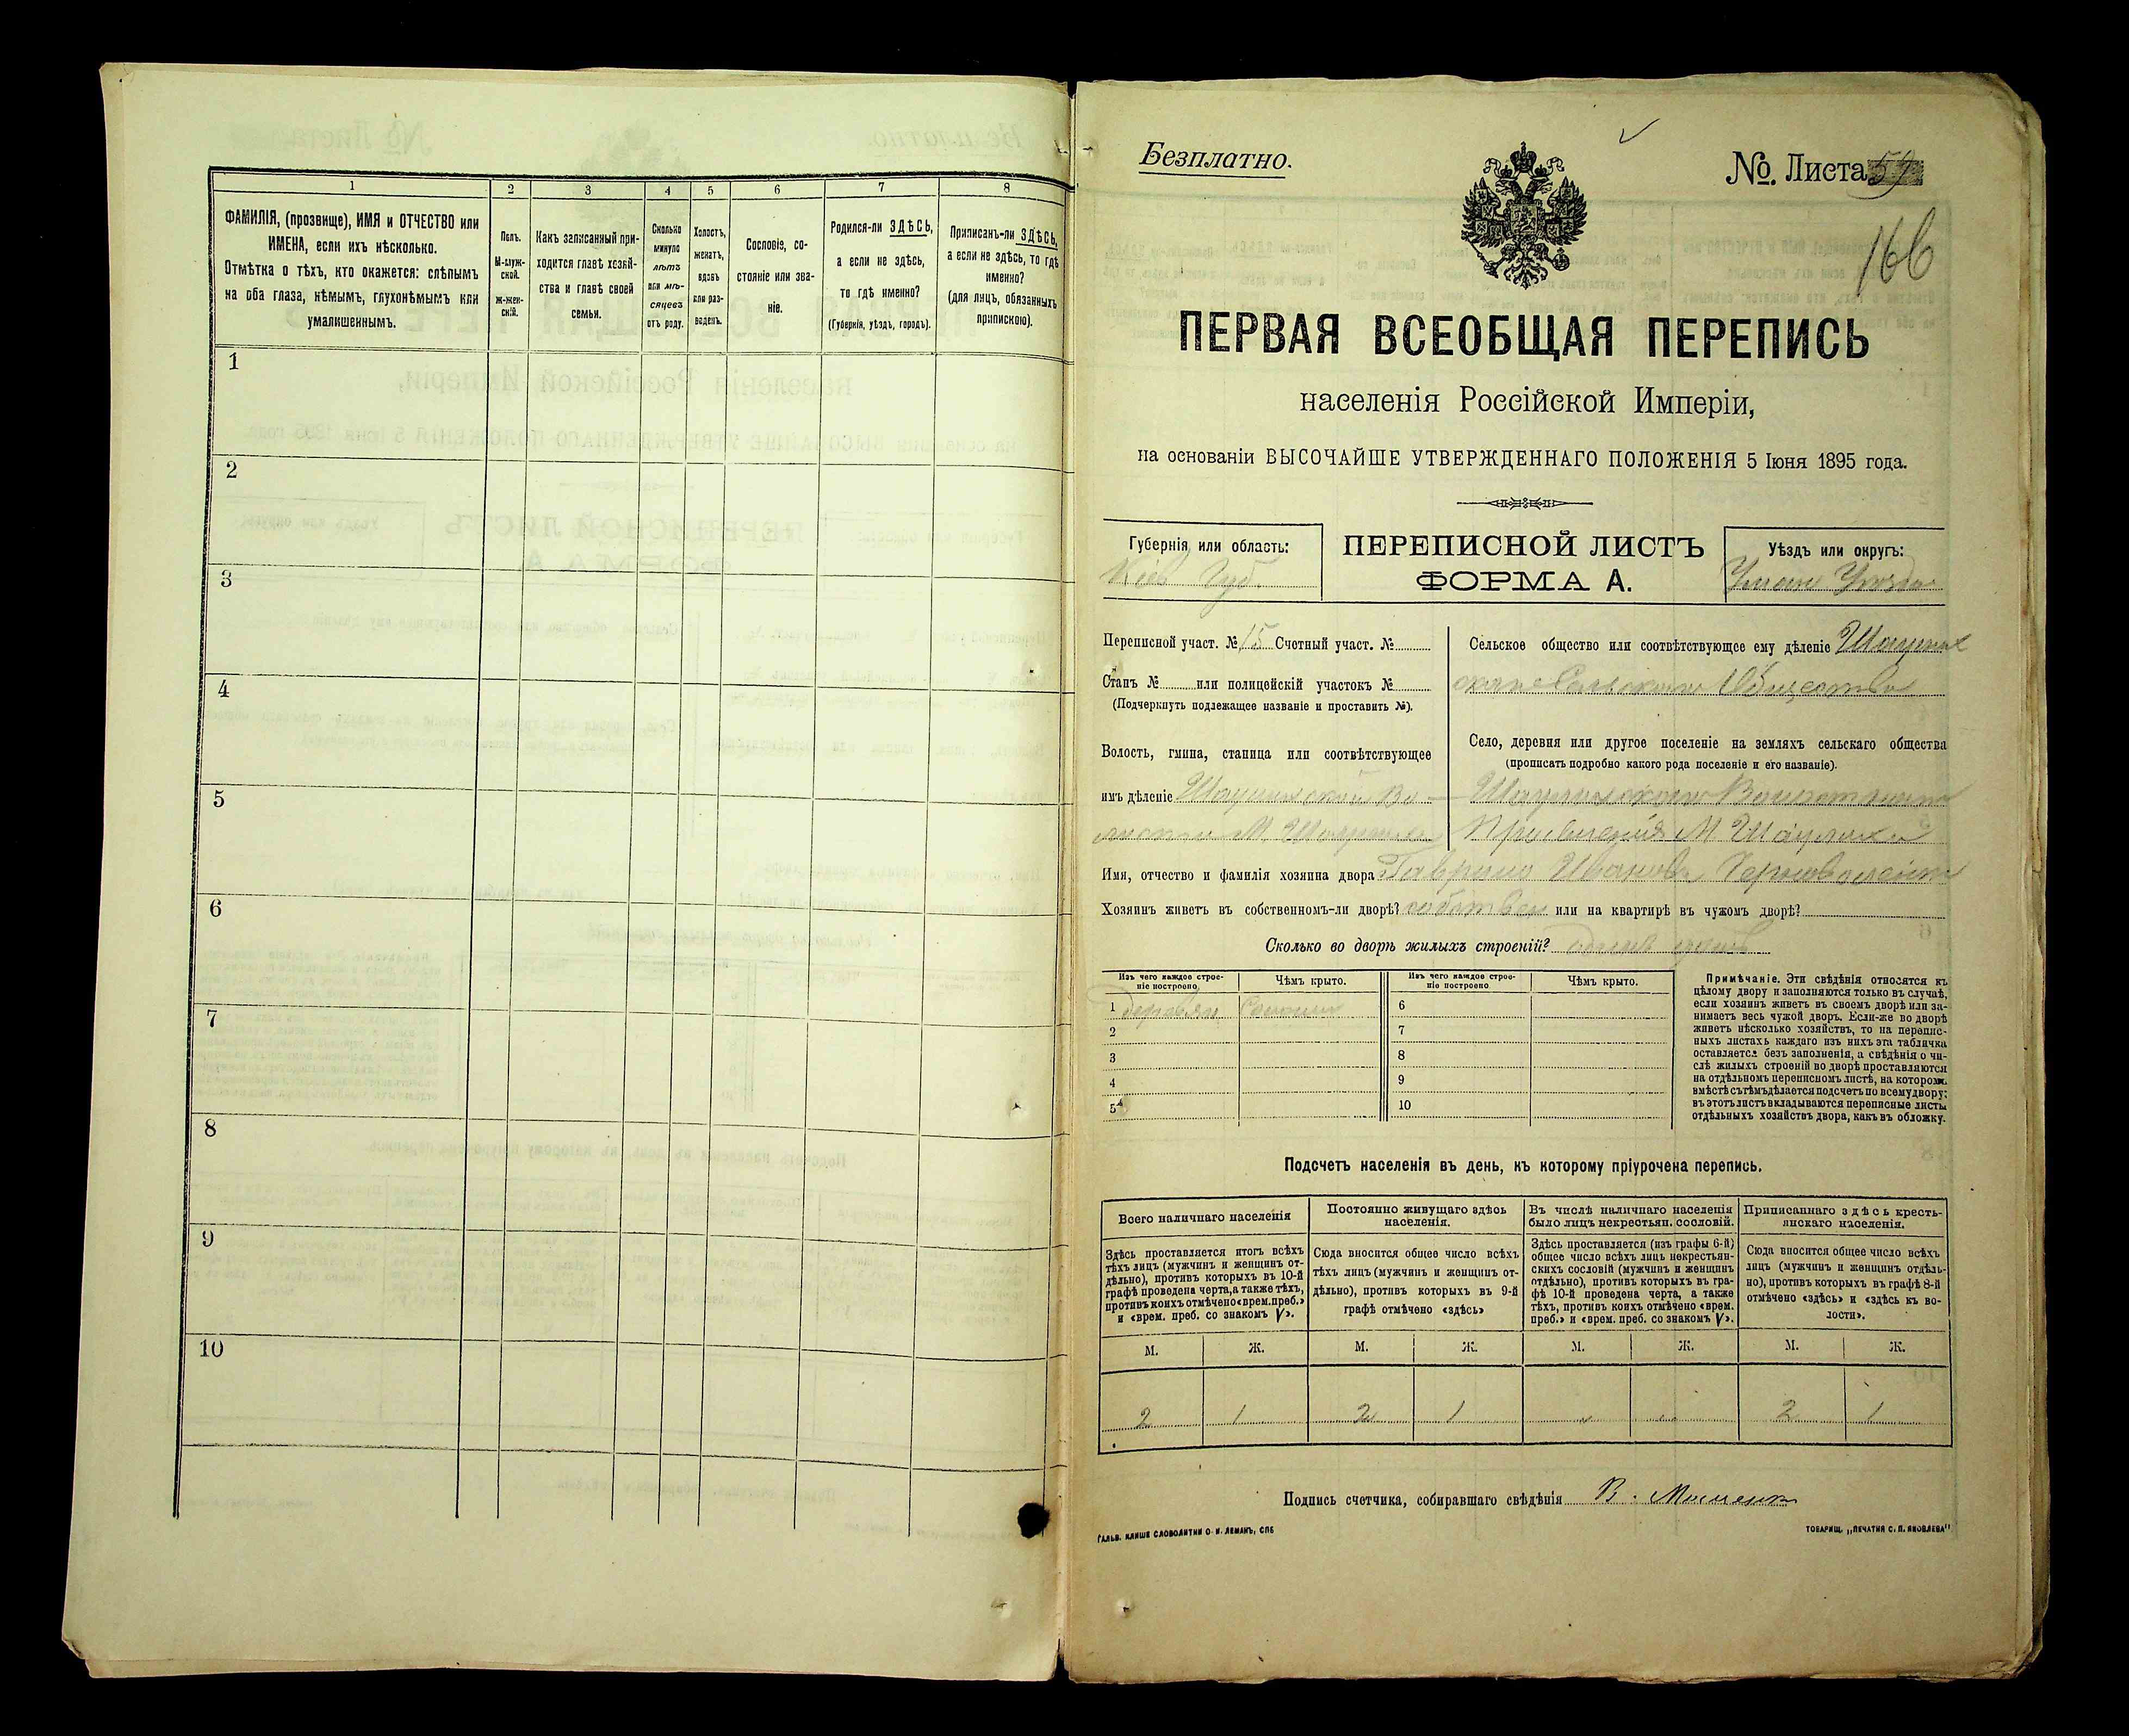 1 2 3 4 5 6 7 8
ФАМИЛІЯ, (прозвище), ИМЯ и ОТЧЕСТВО или
ИМЕНА, если ихъ нѣсколько.
Отмѣтка о тѣхъ, кто окажется: слѣпымъ
на оба глаза, нѣмымъ, глухонѣмымъ или
умалишеннымъ.
Полъ.
М-муж-
ской.
ж-жен-
скій.
Какъ записанный при-
ходится главѣ хозяй-
ства и главѣ своей
семьи.
Сколько
минуло
лѣтъ
или мѣ-
сяцевъ
отъ роду.
Холостъ,
женатъ,
вдовъ
или раз-
веденъ.
Сословіе, со-
стояніе или зва-
ніе.
Родился-ли ЗДѢСЬ,
а если не здѣсь,
то гдѣ именно?
(Губернія, уѣздъ, городъ).
Приписанъ-ли ЗДѢСЬ,
а если не здѣсь, то гдѣ
именно?
(для лицъ, обязанныхъ
припискою).
1
2
3
4
5
6
7
8
9
10
Безплатно.
№. Листа 59
166
ПЕРВАЯ ВСЕОБЩАЯ ПЕРЕПИСЬ
населенія Россійской Имперіи,
на основаніи ВЫСОЧАЙШЕ УТВЕРЖДЕННАГО ПОЛОЖЕНІЯ 5 Іюня 1895 года.
Губернія или область:
Кіев Губ.
ПЕРЕПИСНОЙ ЛИСТЪ
ФОРМА А.
Уѣздъ или округъ:
Уман Уѣзда
Переписной участ. № 15 Счетный участ. №
Станъ № или полицейскій участокъ №
(Подчеркнуть подлежащее названіе и проставить №).
Волость, гмина, станица или соотвѣтствующее
имъ дѣленіе
Сельское общество или соотвѣтствующее ему дѣленіе
Общества
Село, деревня или другое поселеніе на земляхъ сельскаго общества
(прописать подробно какого рода поселеніе и его названіе).
Имя, отчество и фамилія хозяина двора Гаврило Иванов
Хозяинъ живетъ въ собственномъ-ли дворѣ? собствен или на квартирѣ въ чужомъ дворѣ?
Сколько во дворѣ жилыхъ строеній? одинъ
Изъ чего каждое строе-
ніе построено
Чѣмъ крыто.
Изъ чего каждое строе-
ніе построено
Чѣмъ крыто.
1 деревян Солома
2
3
4
5
6
7
8
9
10
Примѣчаніе. Эти свѣдѣнія относятся къ
цѣлому двору и заполняются только въ случаѣ,
если хозяинъ живетъ въ своемъ дворѣ или за-
нимаетъ весь чужой дворъ. Если-же во дворѣ
живетъ нѣсколько хозяйствъ, то на перепис-
ныхъ листахъ каждаго изъ нихъ эта табличка
оставляется безъ заполненія, а свѣдѣнія о чи-
слѣ жилыхъ строеній во дворѣ проставляются
на отдѣльномъ переписномъ листѣ, на которомъ
вмѣстѣ съ тѣмъ дѣлается подсчетъ по всему двору;
въ этотъ листъ вкладываются переписные листы
отдѣльныхъ хозяйствъ двора, какъ въ обложку.
Подсчетъ населенія въ день, къ которому пріурочена перепись.
Всего наличнаго населенія
Постоянно живущаго здѣсь
населенія.
Въ числѣ наличнаго населенія
было лицъ некрестьян. сословій.
Приписаннаго здѣсь кресть-
янскаго населенія.
Здѣсь проставляется итогъ всѣхъ
тѣхъ лицъ (мужчинъ и женщинъ от-
дѣльно), противъ которыхъ въ 10-й
графѣ проведена черта, а также тѣхъ,
противъ коихъ отмѣчено «врем. преб.»
и «врем. преб. со знакомъ V».
Сюда вносится общее число всѣхъ
тѣхъ лицъ (мужчинъ и женщинъ от-
дѣльно), противъ которыхъ въ 9-й
графѣ отмѣчено «здѣсь»
Здѣсь проставляется (изъ графы 6-й)
общее число всѣхъ лицъ некрестьян-
скихъ сословій (мужчинъ и женщинъ
отдѣльно), противъ которыхъ въ гра-
фѣ 10-й проведена черта, а также
тѣхъ, противъ коихъ отмѣчено «врем.
преб.» и «врем. преб. со знакомъ V».
Сюда вносится общее число всѣхъ
лицъ (мужчинъ и женщинъ отдѣль-
но), противъ которыхъ въ графѣ 8-й
отмѣчено «здѣсь» и «здѣсь къ во-
лости».
М. Ж. М. Ж. М. Ж. М. Ж.
2 1 2 1 " " 2 1
Подпись счетчика, собиравшаго свѣдѣнія В.
ГАЛЬВ. КЛИШЕ СЛОВОЛИТНИ О. И. ЛЕМАНЪ, СПБ
ТОВАРИЩ. „ПЕЧАТНЯ С. П. ЯКОВЛЕВА"